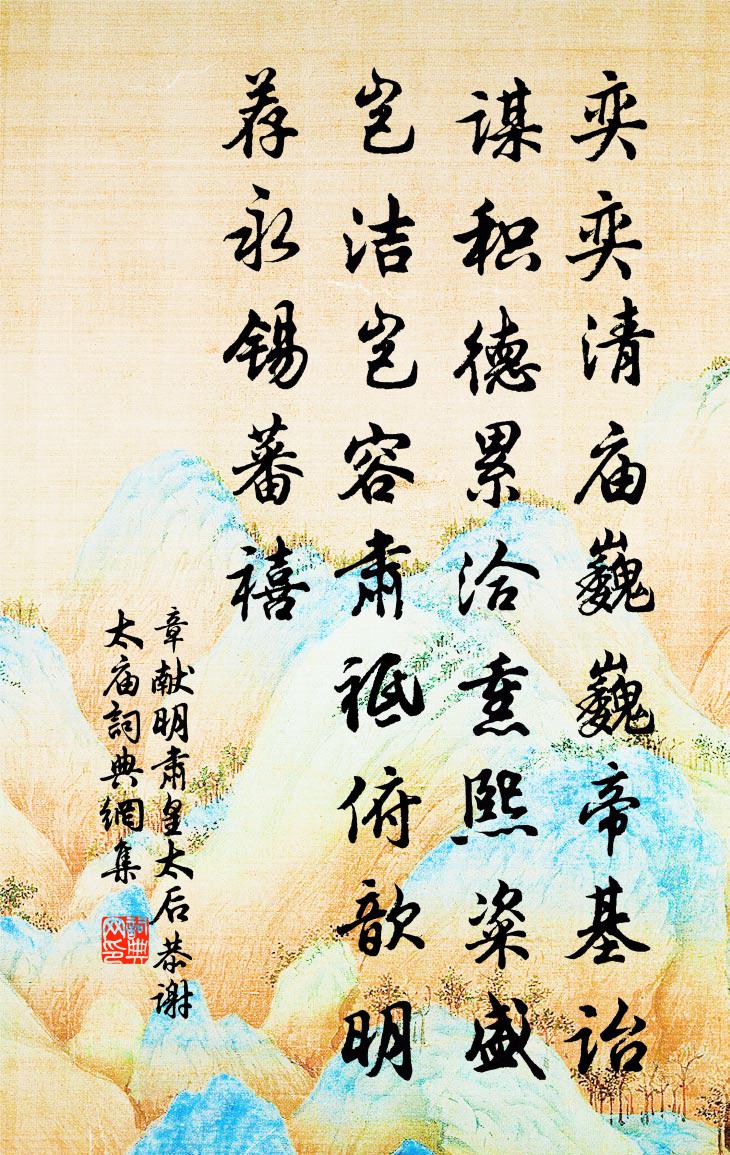 奕奕清庙巍巍帝基诒
谋积德累洽重熙粢盛
岂洁岂容肃祗俯歆明
荐永锡蕃禧
章献明肃皇太后恭谢
太庙詞典網集
詞典网印